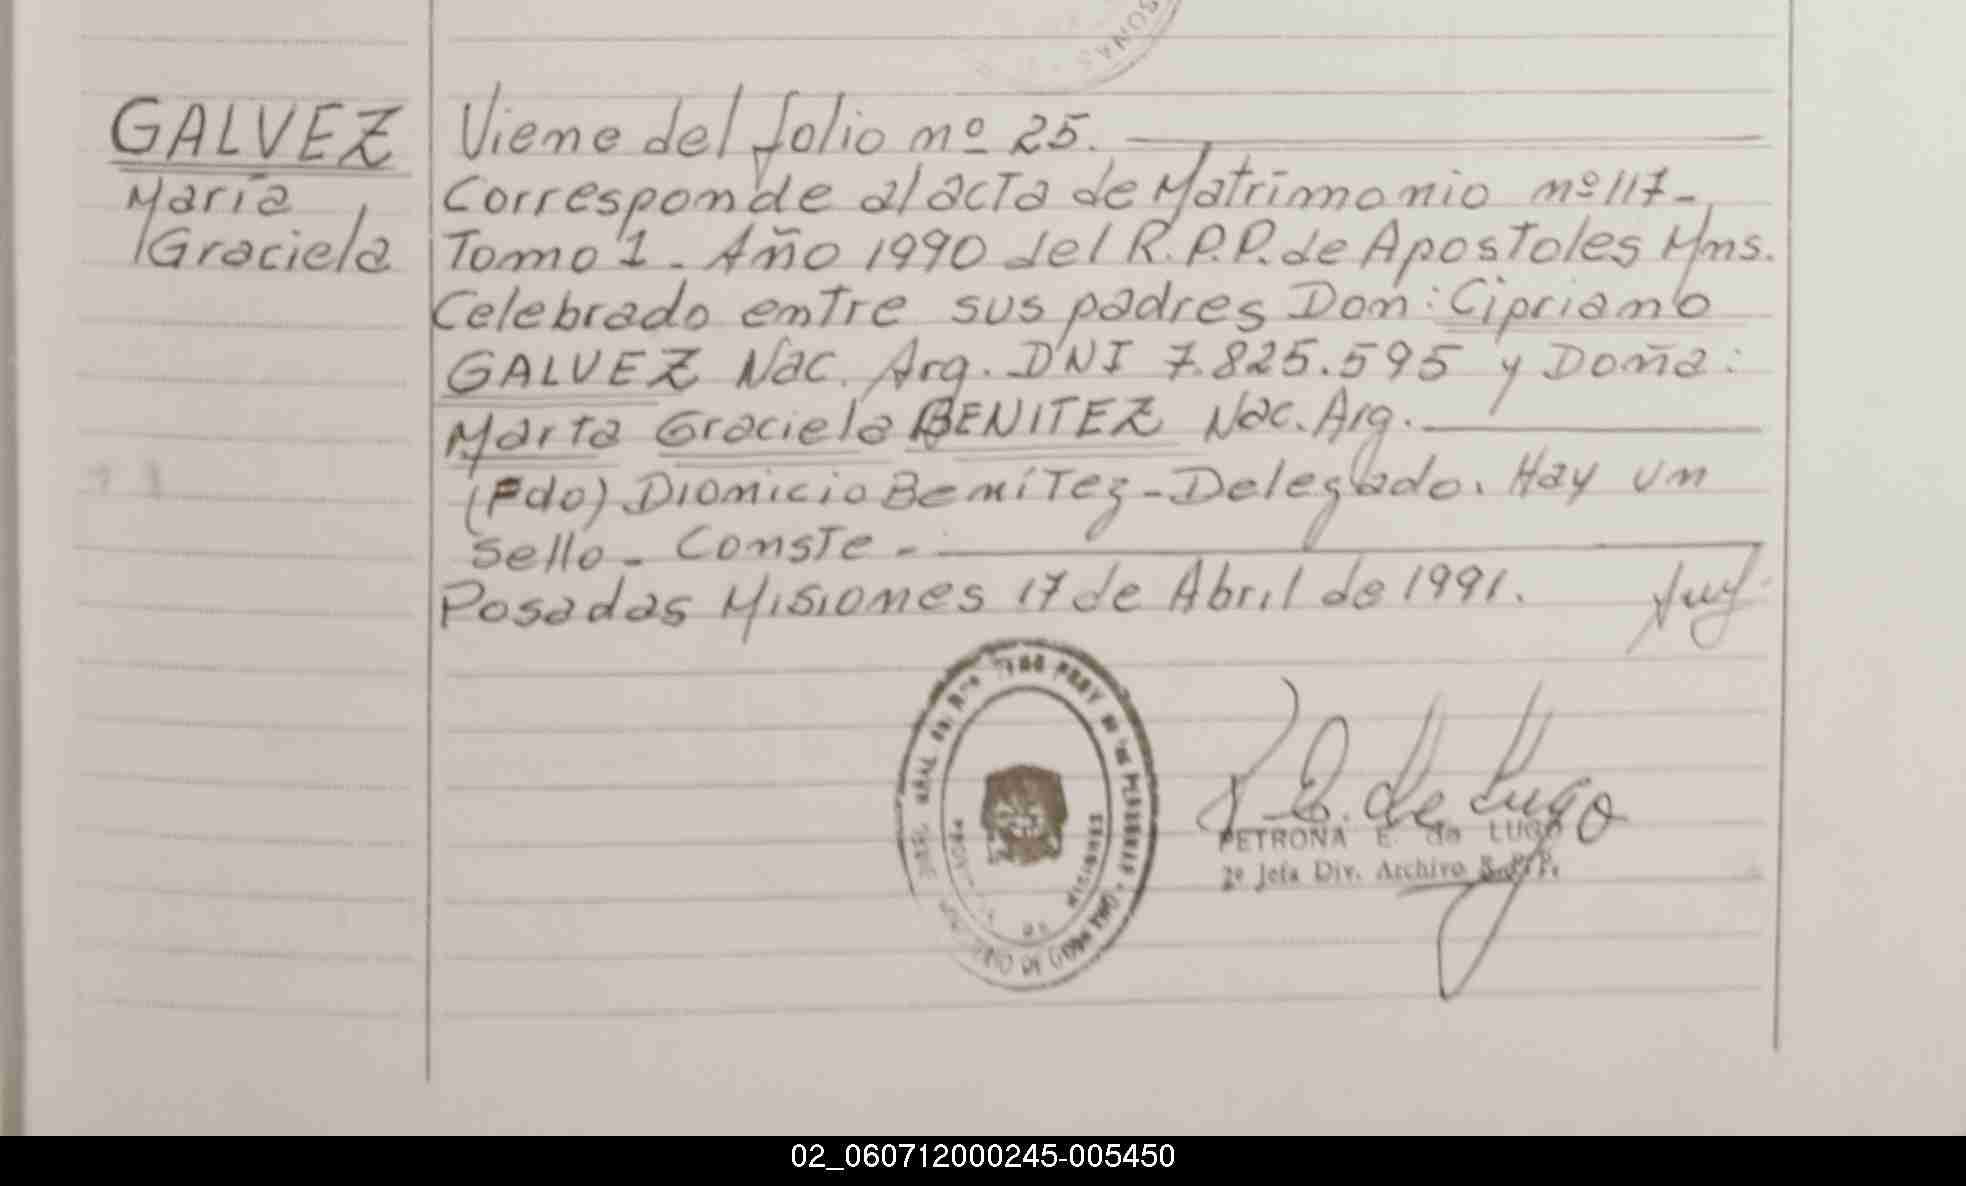 SONAS
GALVEZ
María
Graciela
Viene del folio nº 25.
Corresponde al acta de Matrimonio nº 117-
Tomo 1 - Año 1990 del R.P.P. de Apostoles Mns.
Celebrado entre sus padres Don: Cipriano
GALVEZ Nac. Arg. DNI 7.825.595 y Doña:
Marta Graciela BENITEZ Nac. Arg.
(Fdo) Dionicio Benítez - Delegado. Hay un
sello - Conste -
Posadas Misiones 17 de Abril de 1991.
DE PERSONAS
MISIONES
P. E. de Lugo
PETRONA E. de LUGO
2º Jefa Div. Archivo R.P.P.
02_060712000245-005450